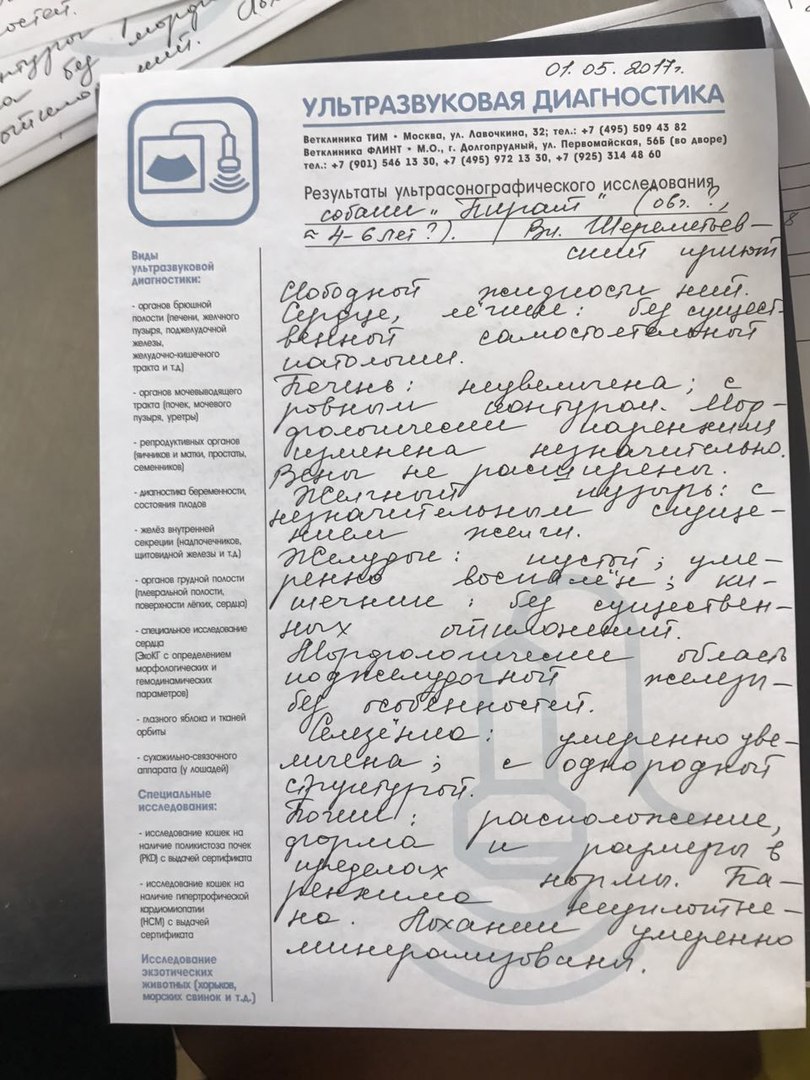 остей.
01.05.2017г.
УЛЬТРАЗВУКОВАЯ ДИАГНОСТИКА
Ветклиника ТИМ • Москва, ул. Лавочкина, 32; тел.: +7 (495) 509 43 82
Ветклиника ФЛИНТ • М.О., г. Долгопрудный, ул. Первомайская, 56Б (во дворе)
тел.: +7 (901) 546 13 30, +7 (495) 972 13 30, +7 (925) 314 48 60
Результаты ультрасонографического исследования
собаки „Пират" (овч.?,
≈ 4-6 лет?). (Вл. Шереметьев-
ский приют
Виды
ультразвуковой
диагностики:
- органов брюшной
полости (печени, желчного
пузыря, поджелудочной
железы,
желудочно-кишечного
тракта и т.д)
- органов мочевыводящего
тракта (почек, мочевого
пузыря, уретры)
- репродуктивных органов
(яичников и матки, простаты,
семенников)
- диагностика беременности,
состояния плодов
- желёз внутренней
секреции (надпочечников,
щитовидной железы и т.д)
- органов грудной полости
(плевральной полости,
поверхности лёгких, сердца)
- специальное исследование
сердца
(ЭхоКГ с определением
морфологических и
гемодинамических
параметров)
- глазного яблока и тканей
орбиты
- сухожильно-связочного
аппарата (у лошадей)
Специальные
исследования:
- исследование кошек на
наличие поликистоза почек
(PKD) с выдачей сертификата
- исследование кошек на
наличие гипертрофической
кардиомиопатии
(HCM) с выдачей
сертификата
Исследование
экзотических
животных (хорьков,
морских свинок и т.д.)
Свободной жидкости нет.
Сердце, лёгкие: без сущест-
венной самостоятельной
патологии.
Печень: неувеличена; с
ровным контуром. Мор-
фологически паренхима
изменена незначительно.
Вены не расширены.
Желчный пузырь: с
незначительным сгуще-
нием желчи.
Желудок: пустой; уме-
ренно воспалён; ки-
шечник: без существен-
ных отклонений.
Морфологически область
поджелудочной железы-
без особенностей.
Селезёнка: умеренно уве-
личена; с однородной
структурой.
Почки: расположение,
форма и размеры в
пределах нормы. Па-
ренхима неуплотне-
на. Лоханки умеренно
минерализованы.